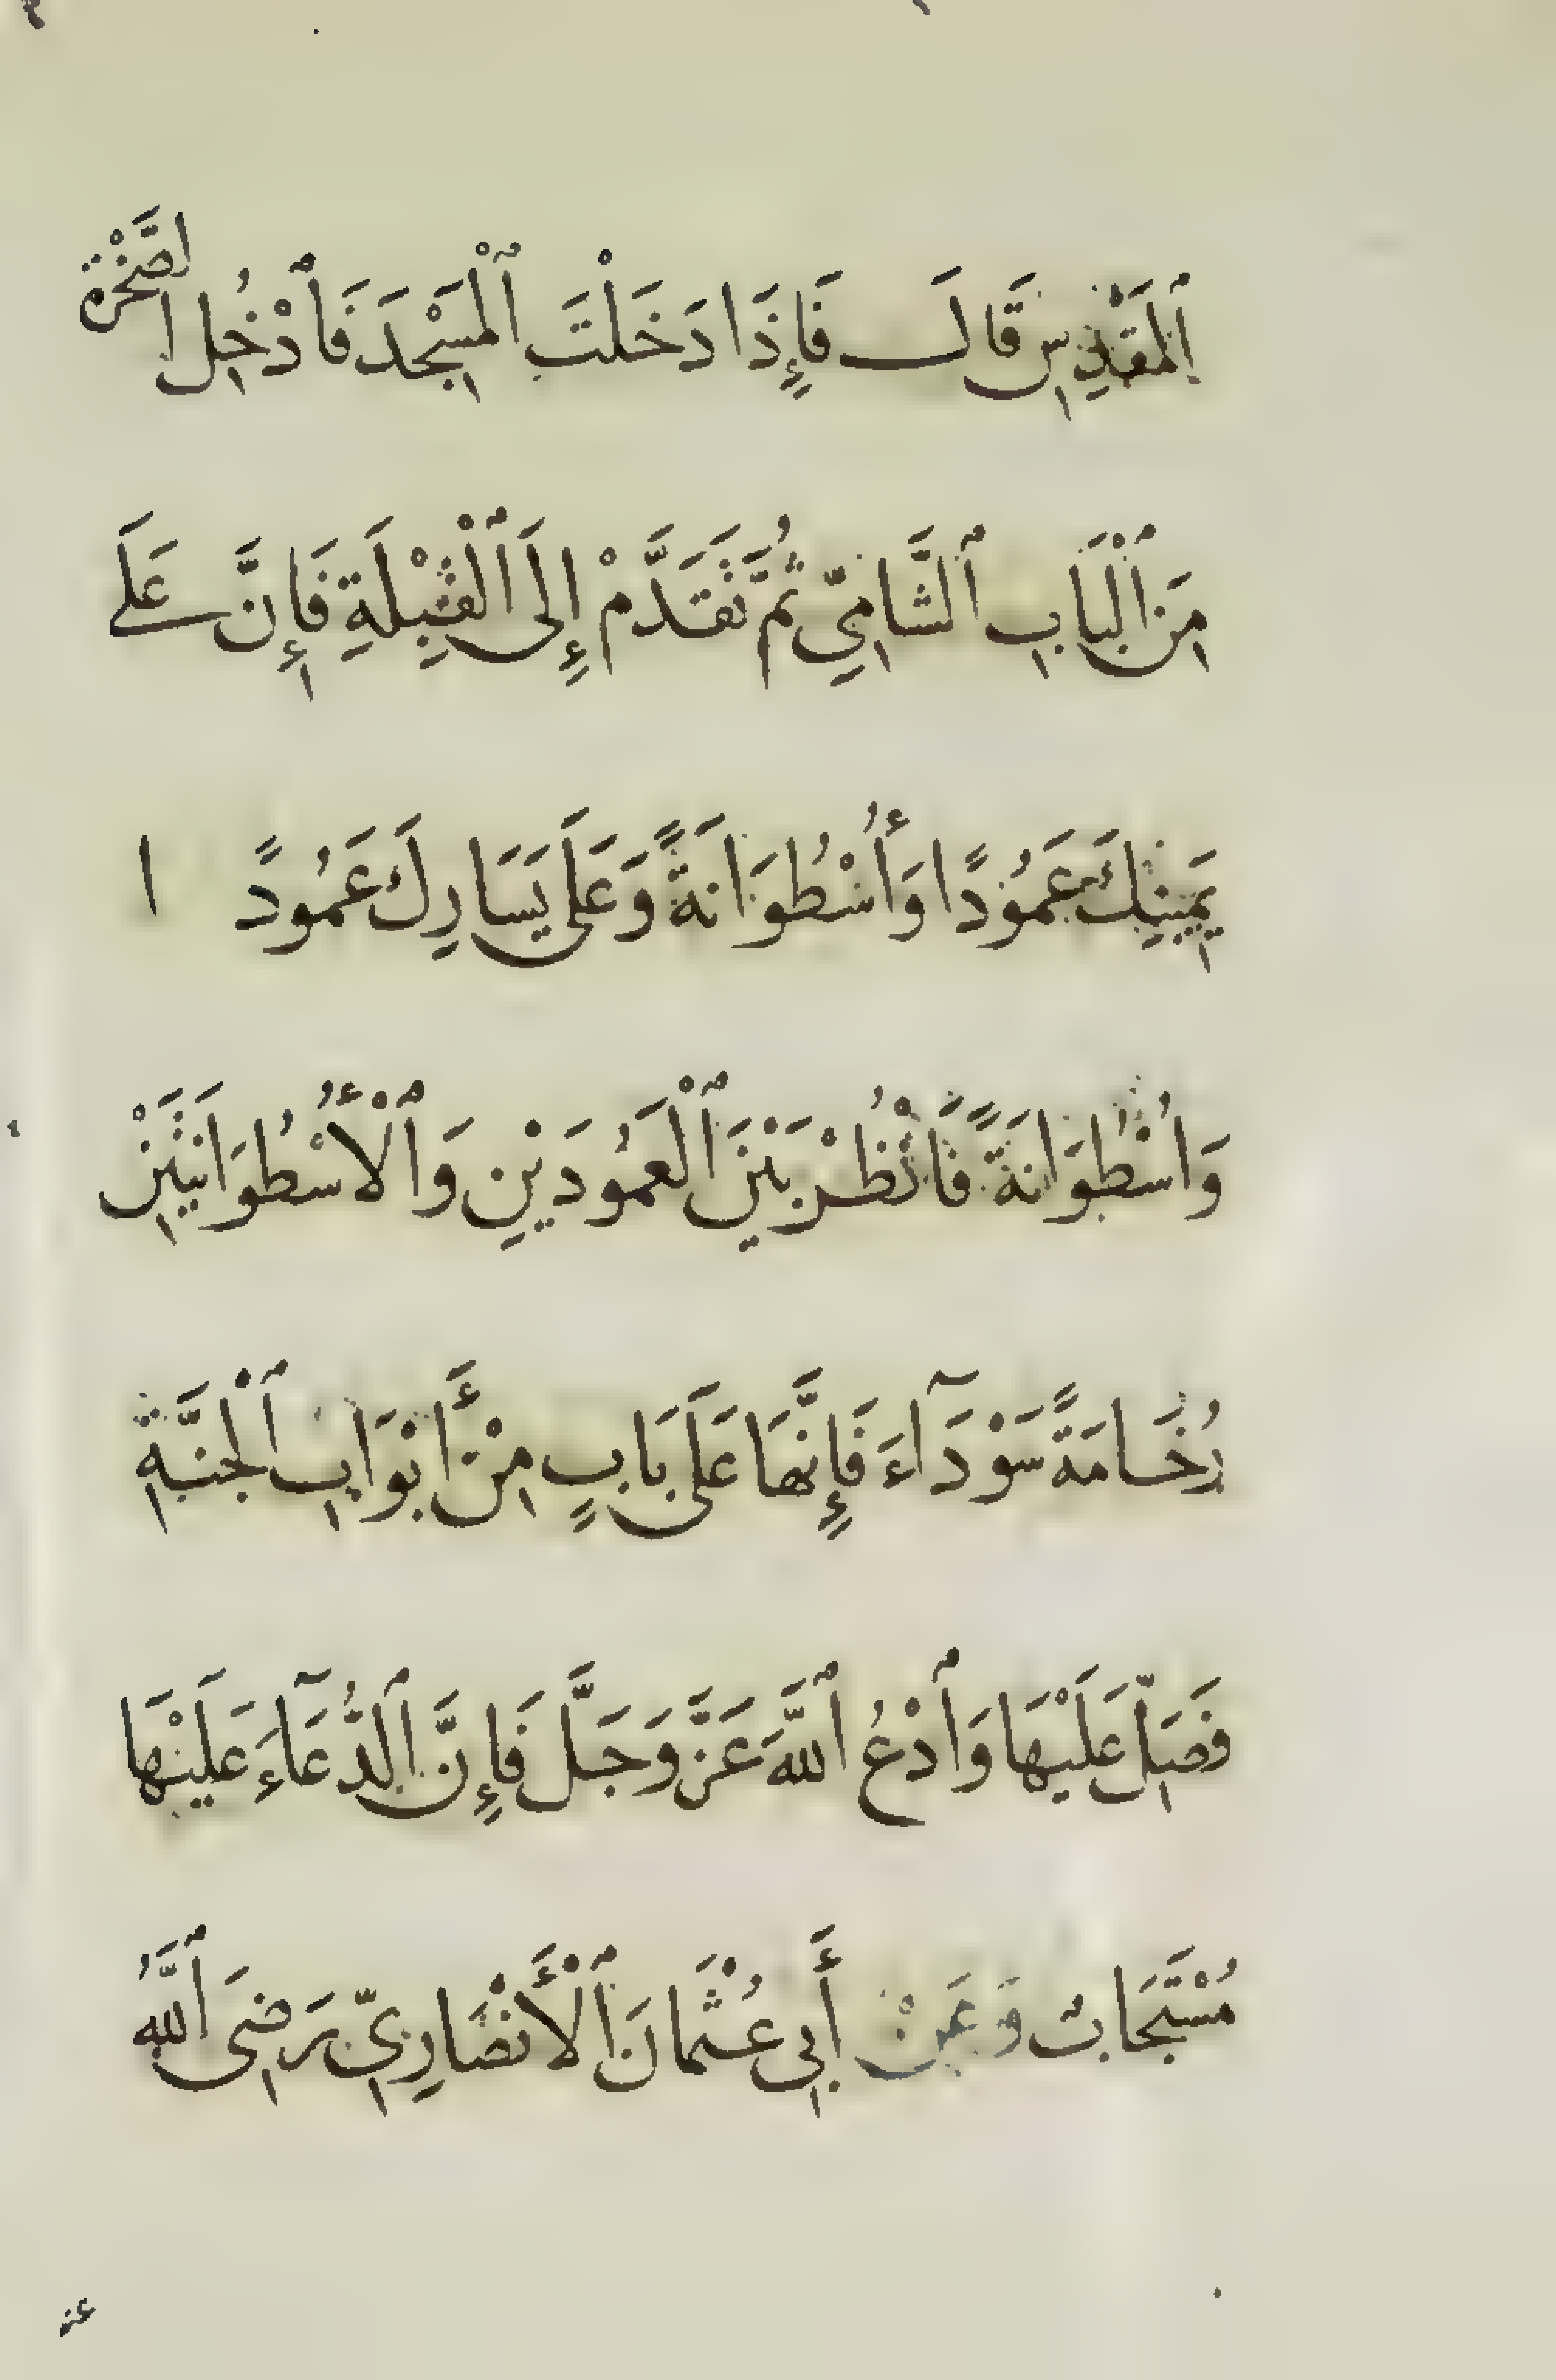 ٱلْمَقْدِسِ قَالَ فَإِذَا دَخَلْتَ ٱلْمَسْجِدَ فَٱدْخُلِ الصَّخْرَةَ
مِنَ ٱلْبَابِ ٱلشَّامِيِّ ثُمَّ تَقَدَّمْ إِلَى ٱلْقِبْلَةِ فَإِنَّ عَلَى
يَمِينِكَ عَمُودًا وَأُسْطُوَانَةً وَعَلَى يَسَارِكَ عَمُودًا
وَاُسْطُوَانَةً فَاُنْظُرْ بَيْنَ ٱلْعَمُودَيْنِ وَٱلْأُسْطُوَانَيْنِ
رُخَامَةً سَوْدَآءَ فَإِنَّهَا عَلَى بَابٍ مِنْ أَبْوَابِ ٱلْجَنَّةِ
فَصَلِّ عَلَيْهَا وَٱدْعُ ٱللَّهَ عَزَّ وَجَلَّ فَإِنَّ ٱلدُّعَآءَ عَلَيْهَا
مُسْتَجَابٌ وَعَنْ أَبِي عُثْمَانَ ٱلْأَنْصَارِيِّ رَضِيَ ٱللَّهُ